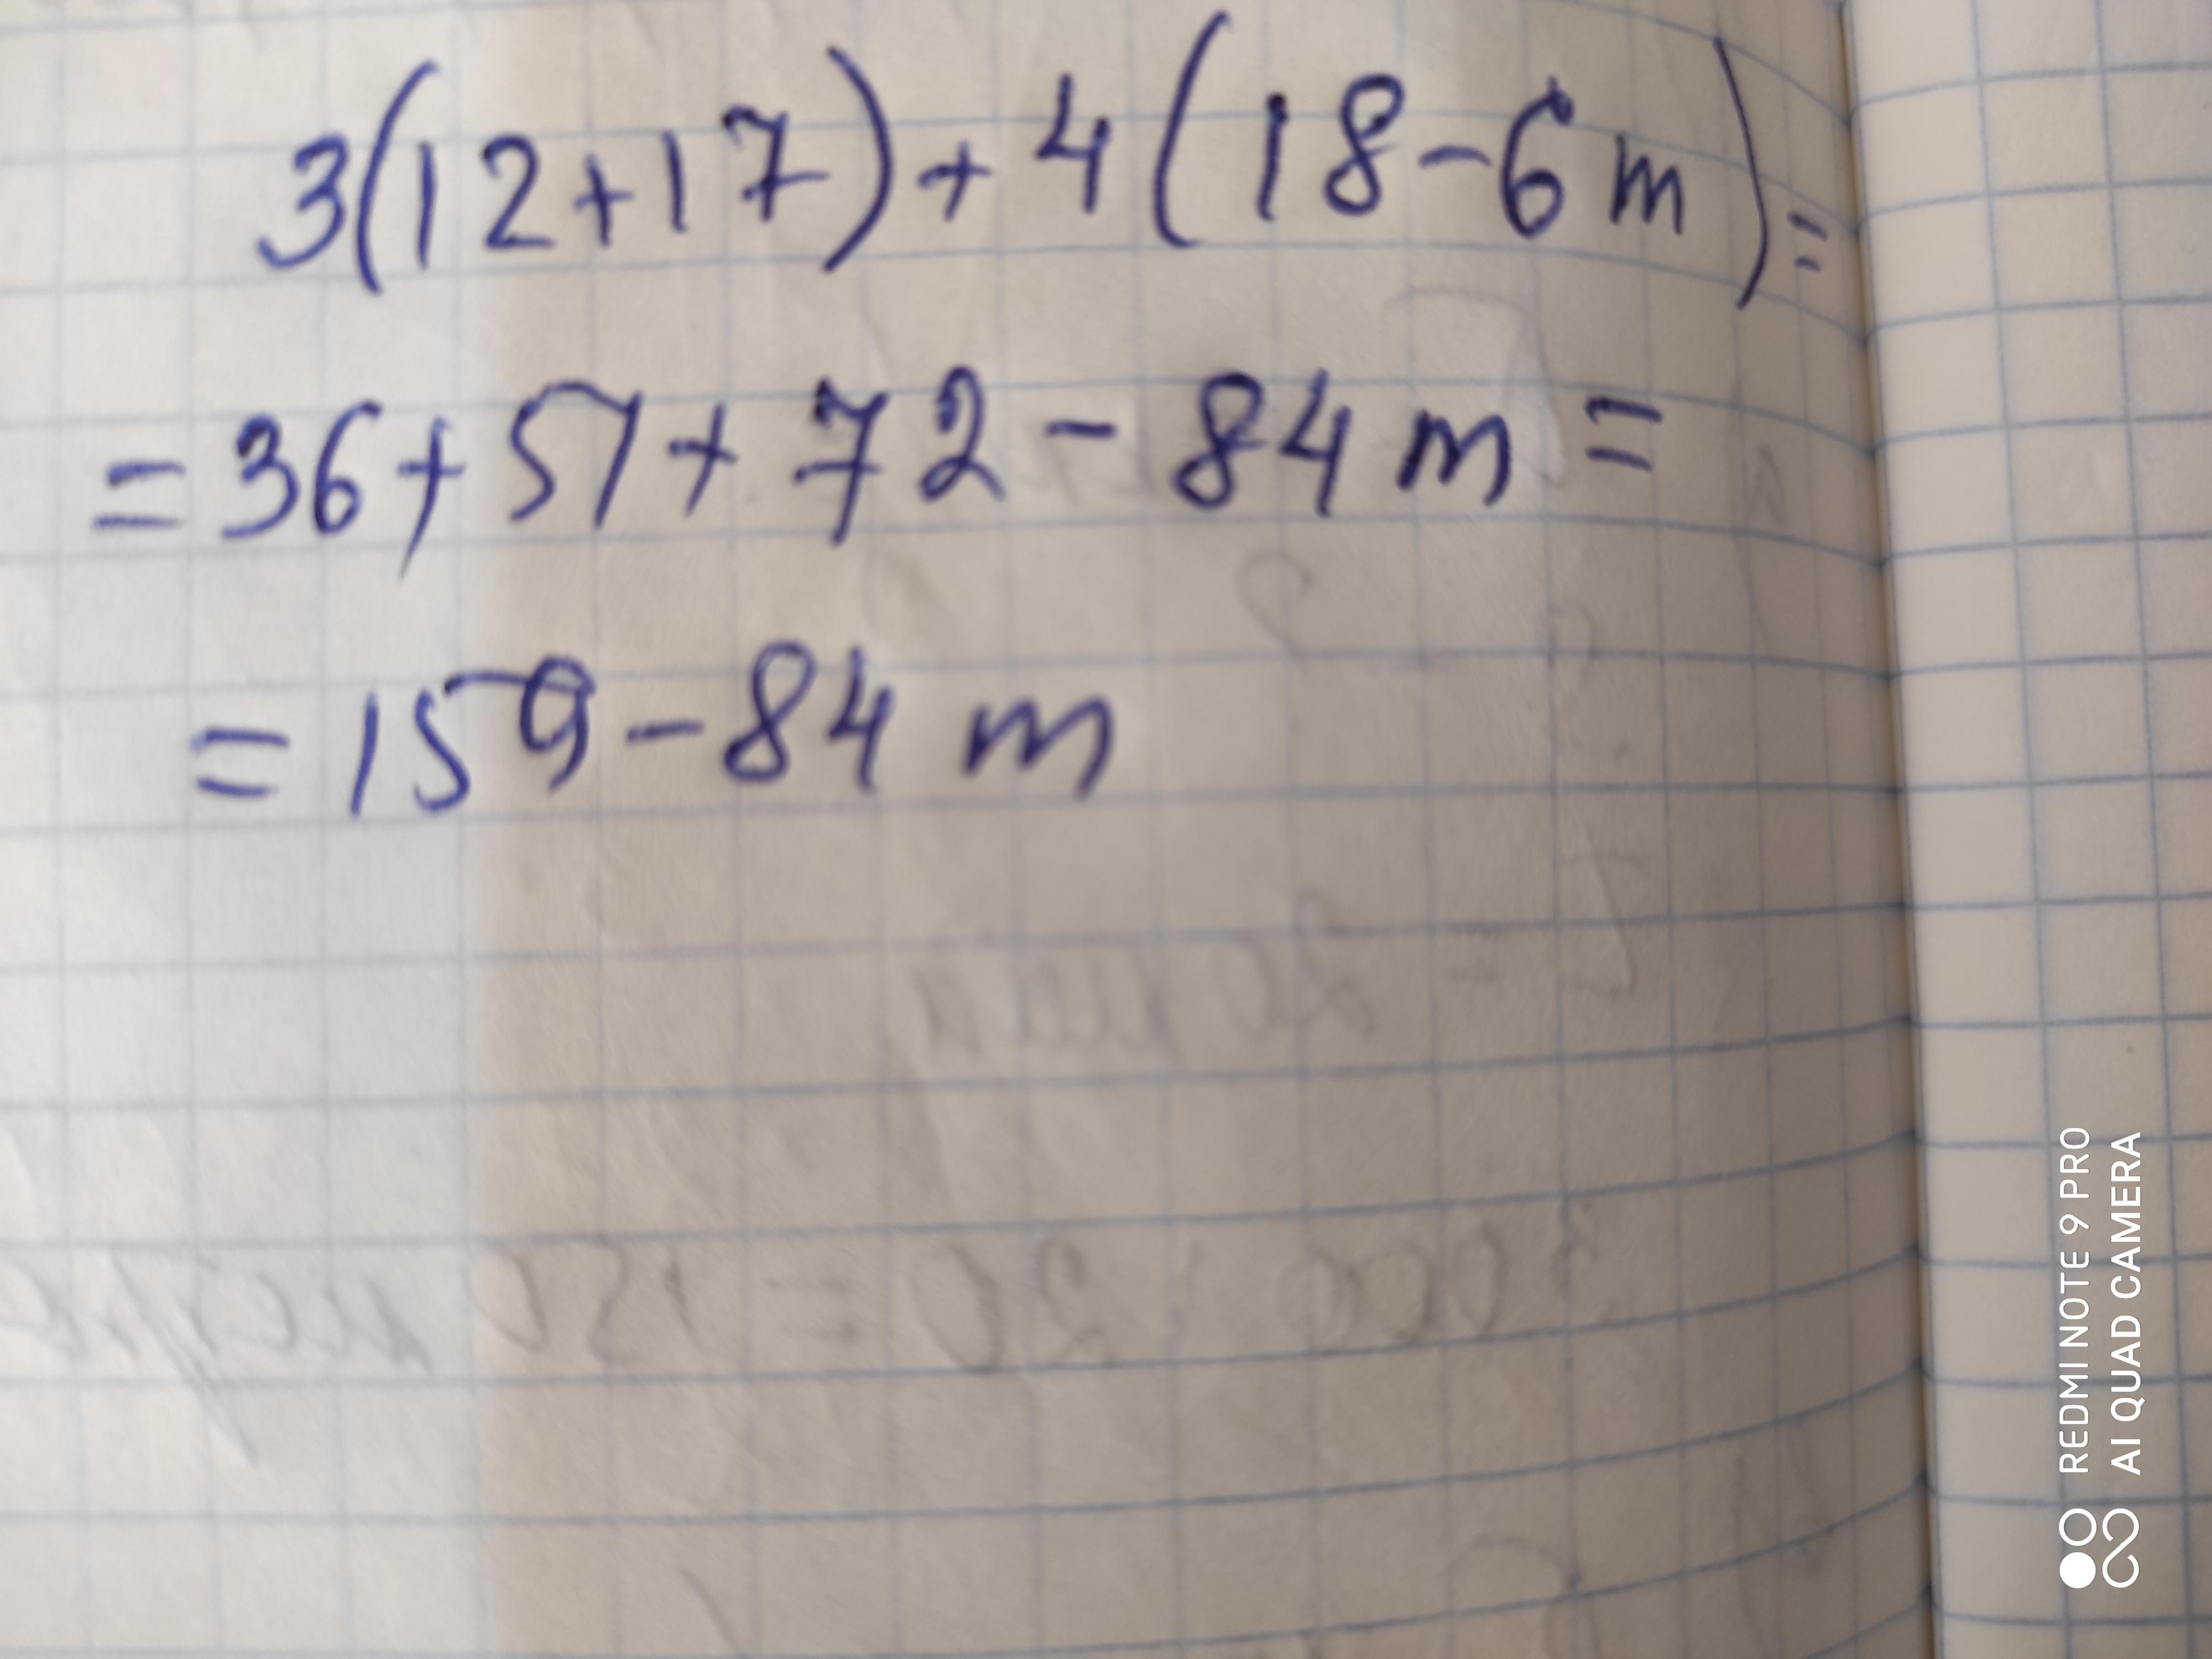 3(12+17)+4(18-6m)=
=36+51+72-84m=
=159-84m
REDMI NOTE 9 PRO
AI QUAD CAMERA